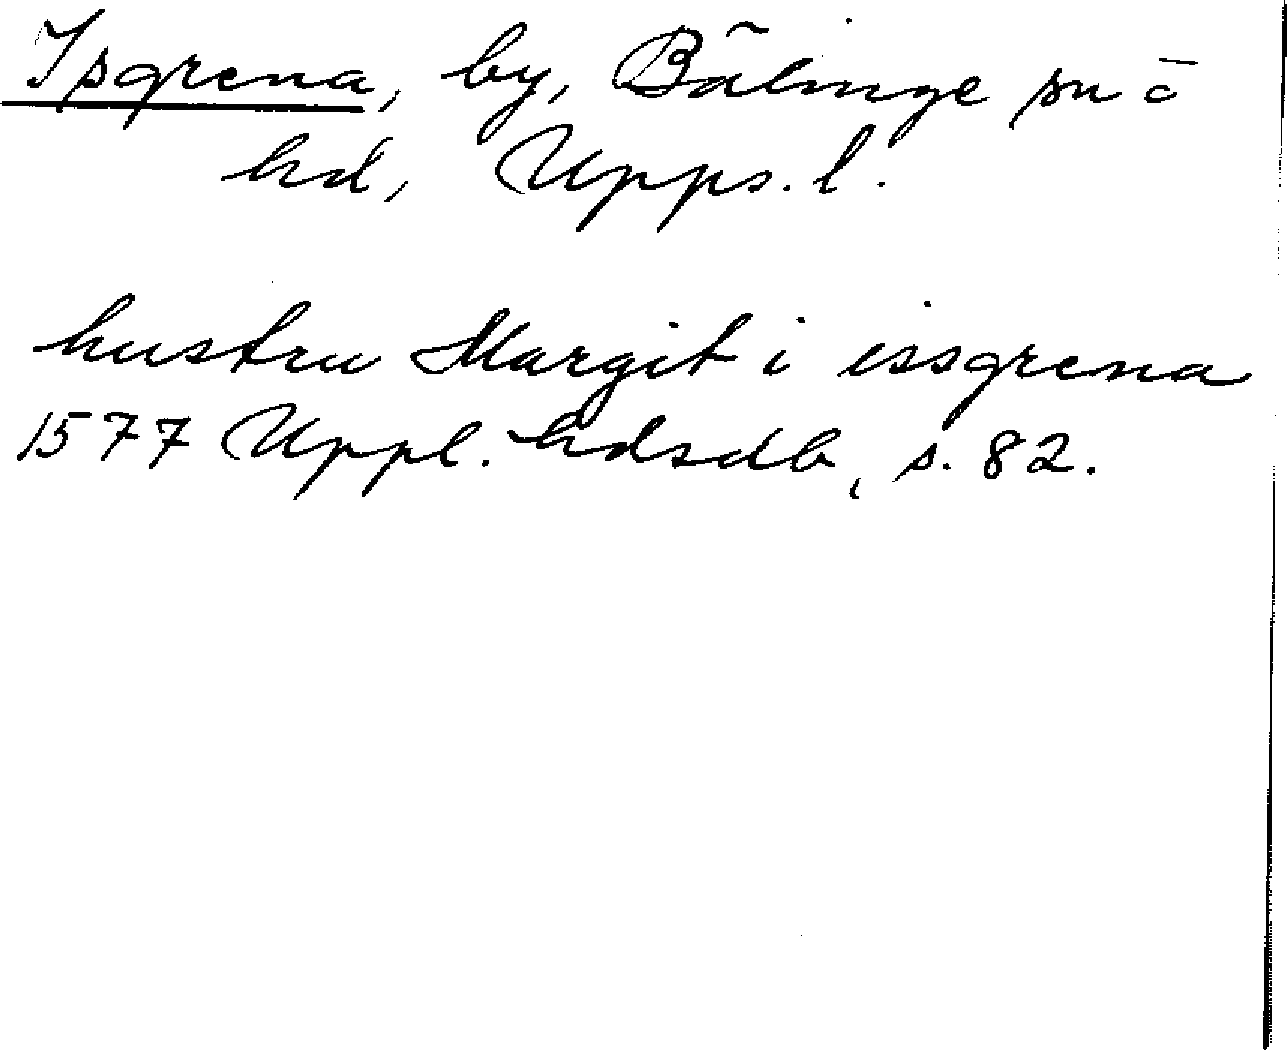 Isgrena, by, Bälinge sn ö
hd, Upps. l.
hustru Margit i issgrena
1577 Uppl. hdsdb, s. 82.